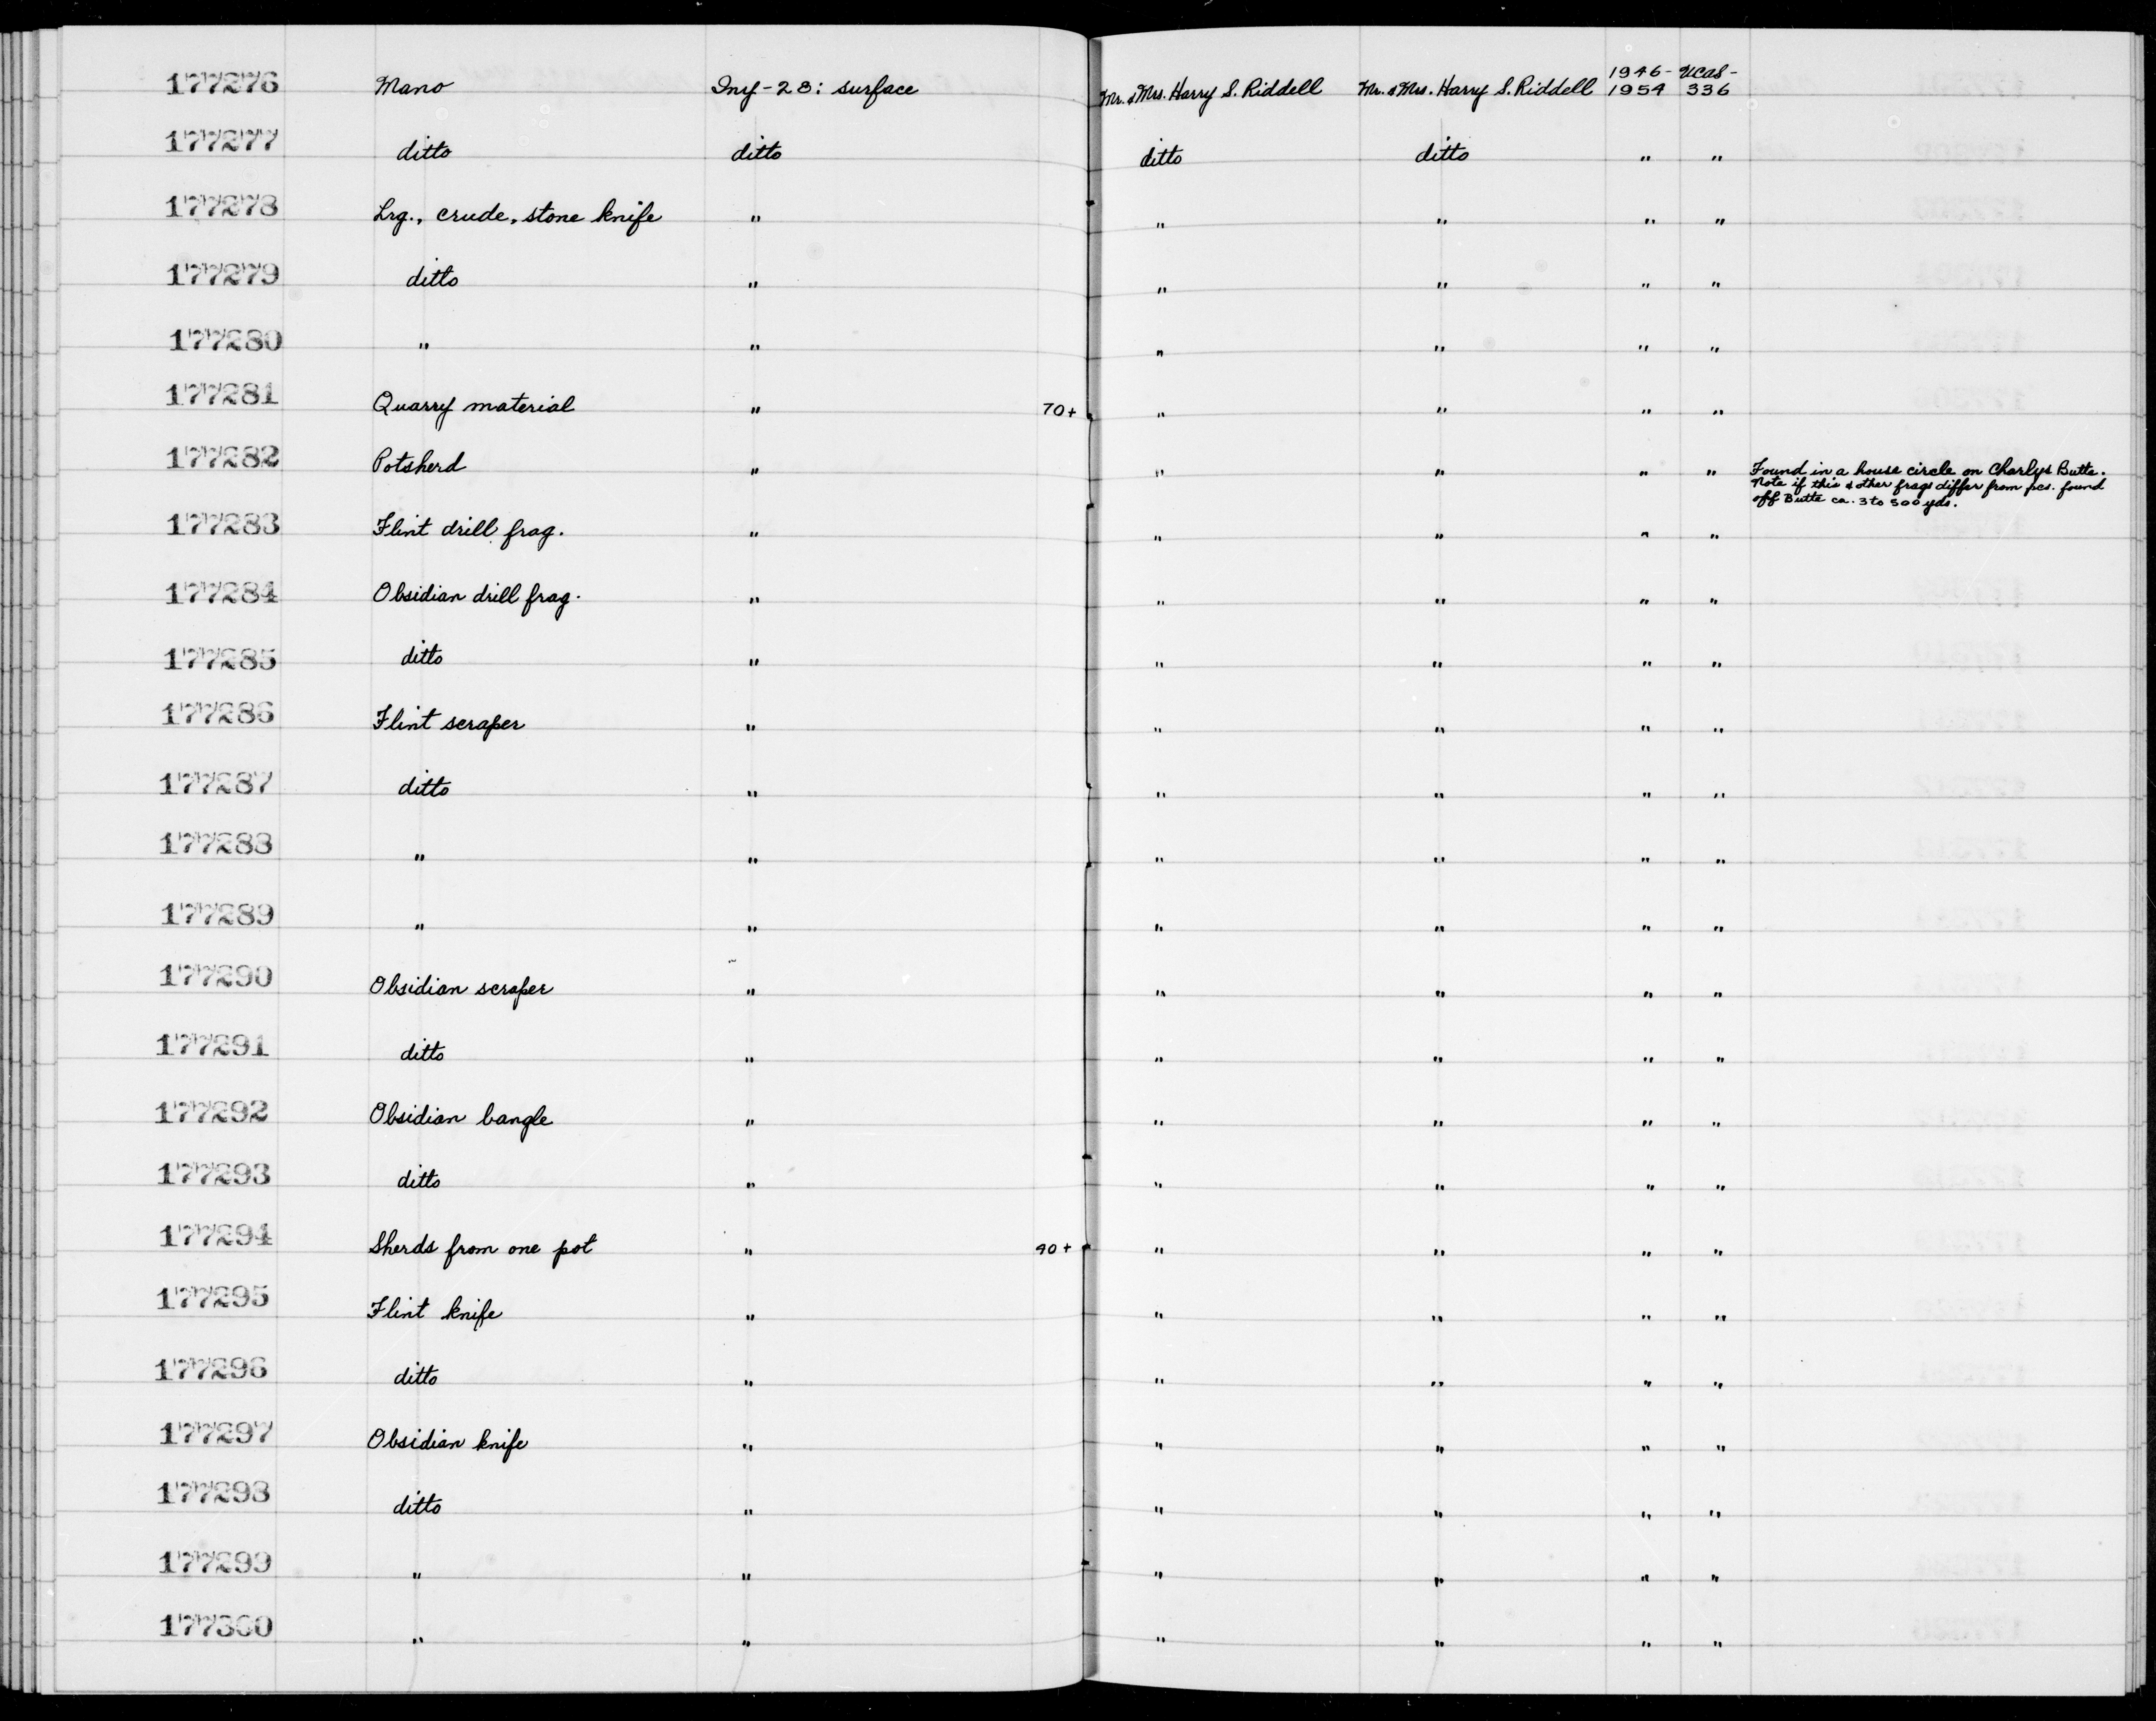 177276 Mano Iny-28: surface Mr. & Mrs. Harry S. Riddell Mr. & Mrs. Harry S. Riddell 1946-1954 UCAS-336
177277 ditto ditto ditto ditto " "
177278 Lrg., crude, stone knife " " " " "
177279 ditto " " " " "
177280 " " " " " "
177281 Quarry material " 70+ " " " "
177282 Potsherd " " " " " Found in a house circle on Charlys Butte.
Note if this & other frags differ from pcs. found
off Butte ca. 3 to 500 yds.
177283 Flint drill frag. " " " " "
177284 Obsidian drill frag. " " " " "
177285 ditto " " " " "
177286 Flint scraper " " " " "
177287 ditto " " " " "
177288 " " " " " "
177289 " " " " " "
177290 Obsidian scraper " " " " "
177291 ditto " " " " "
177292 Obsidian bangle " " " " "
177293 ditto " " " " "
177294 Sherds from one pot " 90+ " " " "
177295 Flint knife " " " " "
177296 ditto " " " " "
177297 Obsidian knife " " " " "
177298 ditto " " " " "
177299 " " " " " "
177300 " " " " " "